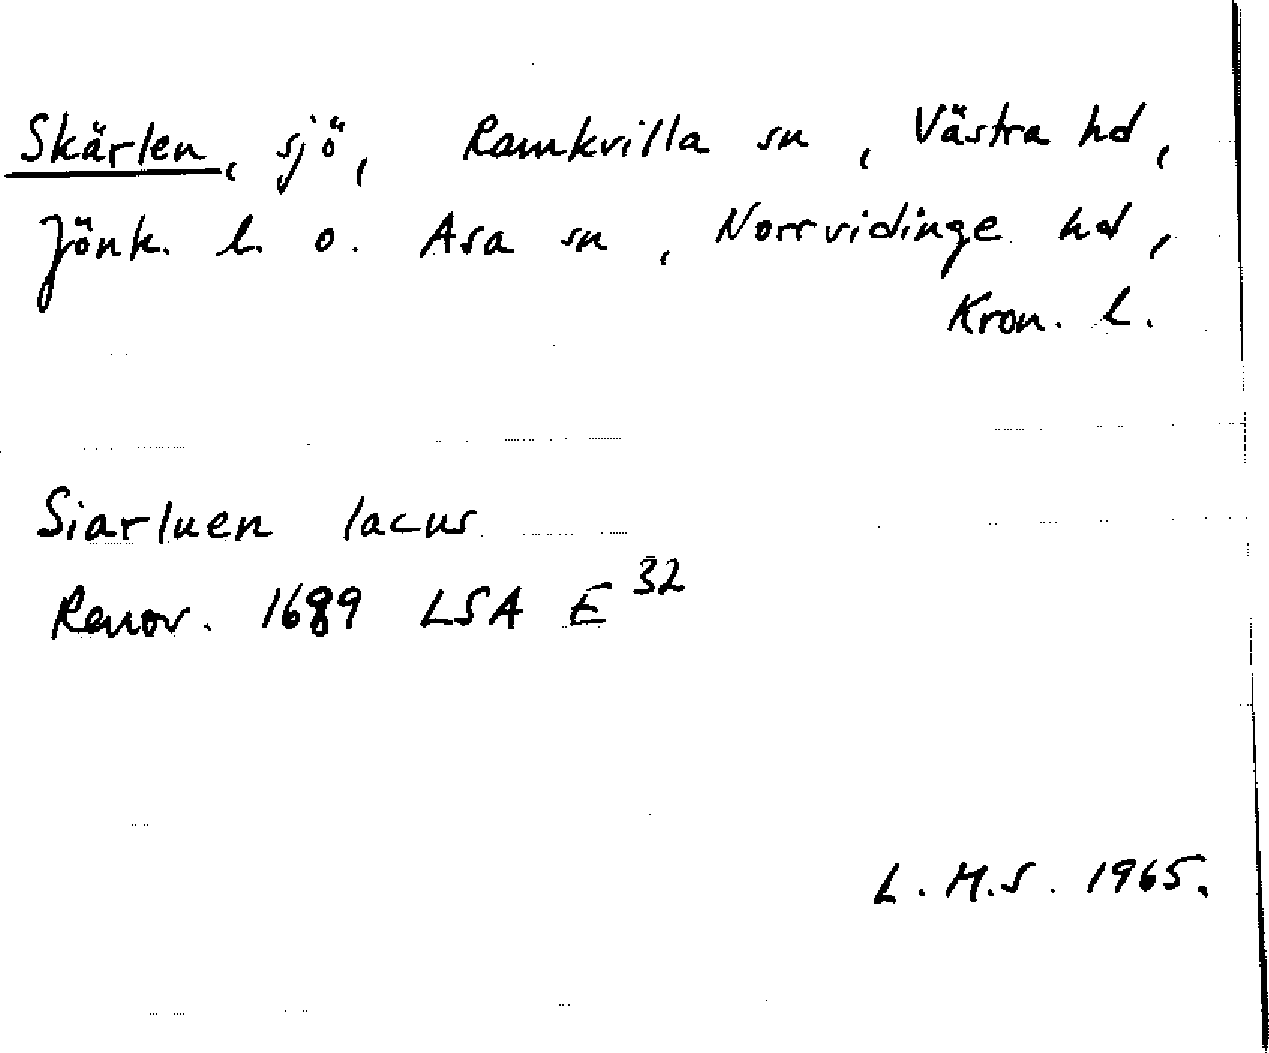 Skärlen, sjö, Ramkvilla sn, Västra hd,
Jönk. l. o. Asa sn, Norrvidinge hd,
Kron. l.
Siarluen lacus
Renov. 1689 LSA E 32
L. M.S. 1965.